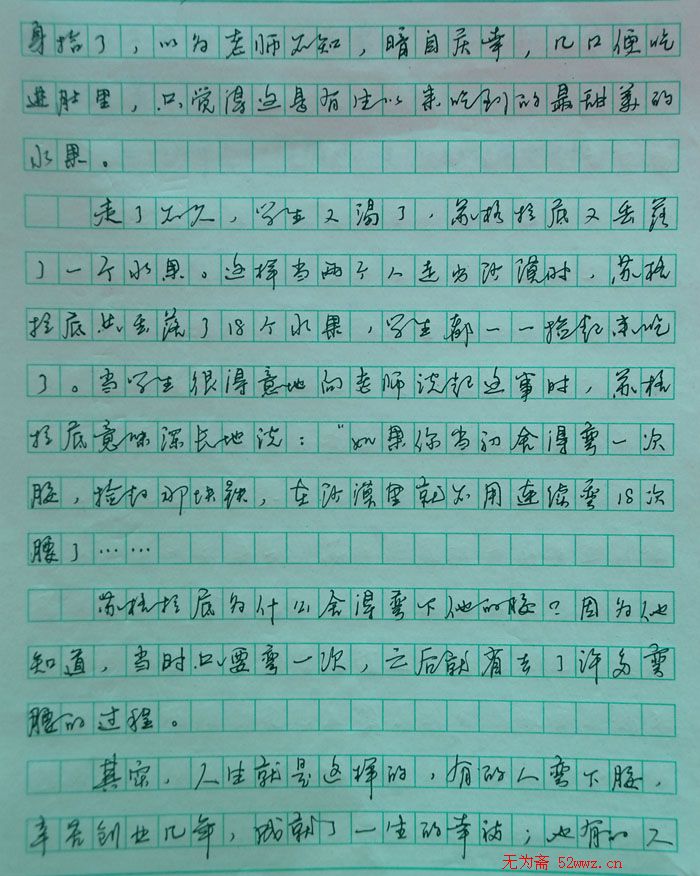 身捡了，以为老师不知，暗自庆幸，几口便吃
进肚里，只觉得这是有生以来吃到的最甜美的
水果。
走了不久，学生又渴了，苏格拉底又丢落
了一个水果。这样当两个人走出沙漠时，苏格
拉底共丢落了18个水果，学生都一一捡起来吃
了。当学生很得意地向老师谈起这事时，苏格
拉底意味深长地说："如果你当初舍得弯一次
腰，捡起那块铁，在沙漠里就不用连续弯18次
腰了……
苏格拉底为什么舍得弯下他的腰？因为他
知道，当时只要弯一次，之后就省去了许多弯
腰的过程。
其实，人生就是这样的，有的人弯下腰，
辛苦创业几年，成就了一生的幸福；也有的人
无为斋 52wwz.cn